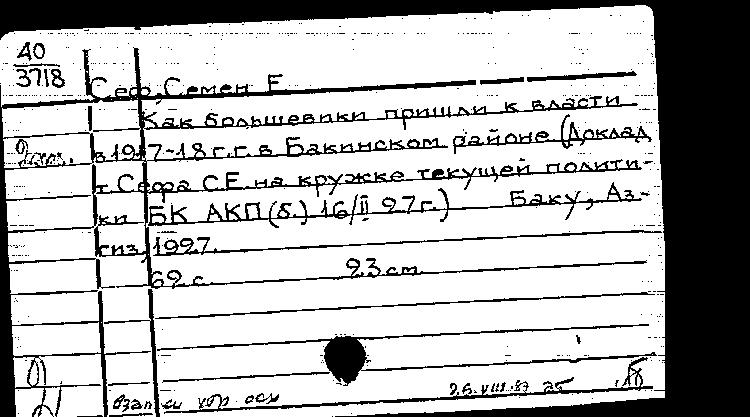 40
3718
Сеф, Семен Е
Как большевики пришли к власти
в 1917-18 г.г. в Бакинском районе (Доклад
т Сефа С.Е. на кружке текущей полити-
ки БК АКП(б.) 16/II 27г.) Баку, Аз-
гиз, 1927.
62 с. 23 см
26.VIII.87